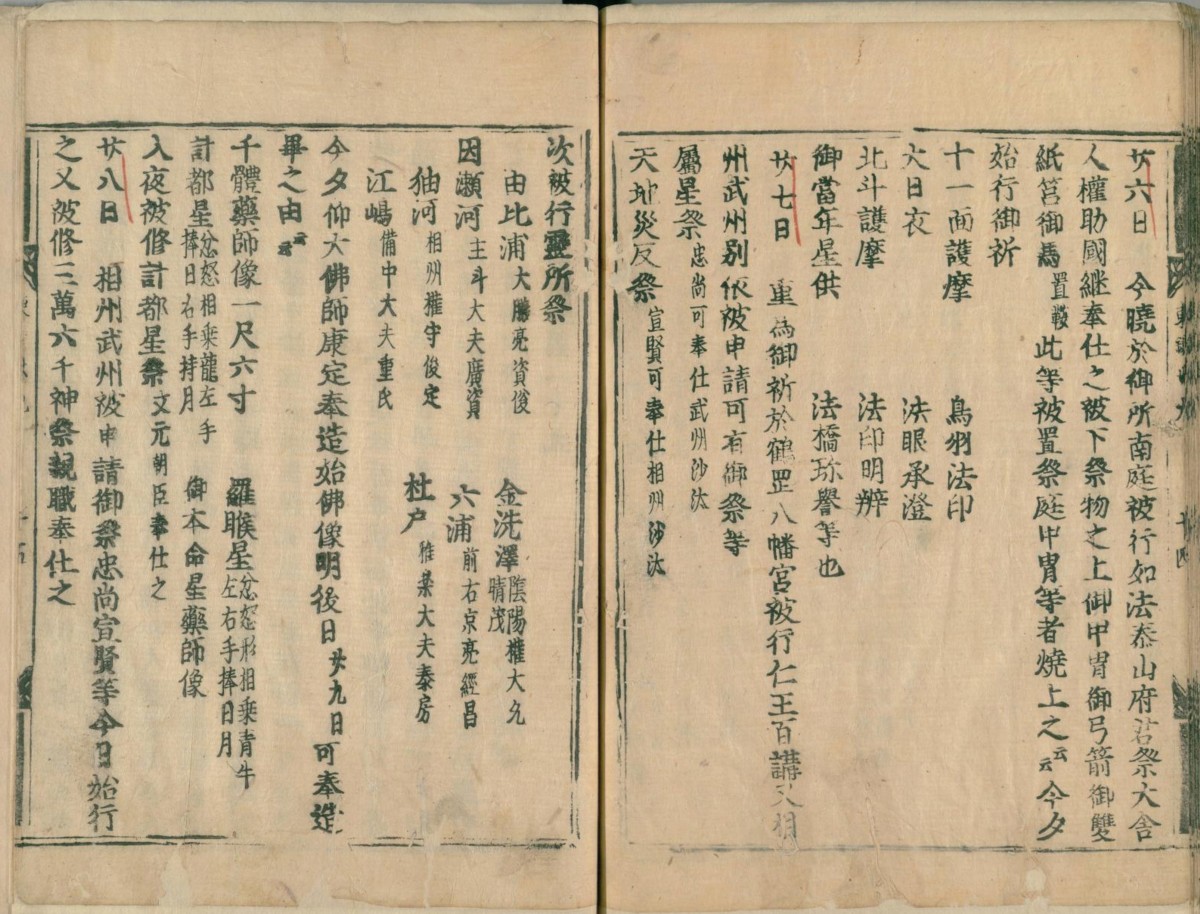 廿六日 今曉於御所南庭被行如法泰山府君祭大舎
人權助國継奉仕之被下祭物之上御甲冑御弓箭御雙
紙筥御馬置鞍此等被置祭庭甲冑等者燒上之云云今夕
始行御祈
十一面護摩 鳥羽法印
大日衣 法眼承澄
北斗護摩 法印明辨
御當年星供 法橋珎譽等也
廿七日 重爲御祈於鶴罡八幡宮被行仁王百講又相
州武州別依被申請可有御祭等
屬星祭忠尚可奉仕武州沙汰
天地災反祭宣賢可奉仕相州沙汰
次被行靈所祭
由比浦大膳亮資俊 金洗澤陰陽權大允晴茂
因瀬河主斗大夫廣資 六浦前右京亮經昌
狛河相州權守俊定 杜户雅樂大夫泰房
江嶋備中大夫重氏
今夕仰大佛師康定奉造始佛像明後日廿九日可奉造
畢之由云云
千體藥師像一尺六寸 羅睺星忿怒形相乘青牛左右手捧日月
計都星忿怒相乘龍左手捧日右手持月 御本命星藥師像
入夜被修計都星祭文元朝臣奉仕之
廿八日 相州武州被申請御祭忠尚宣賢等今日始行
之又被修三萬六千神祭親職奉仕之